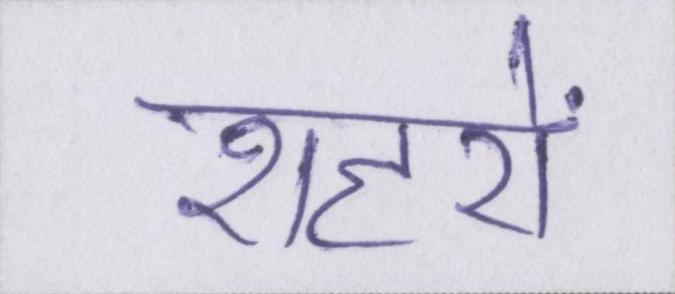 शहरों